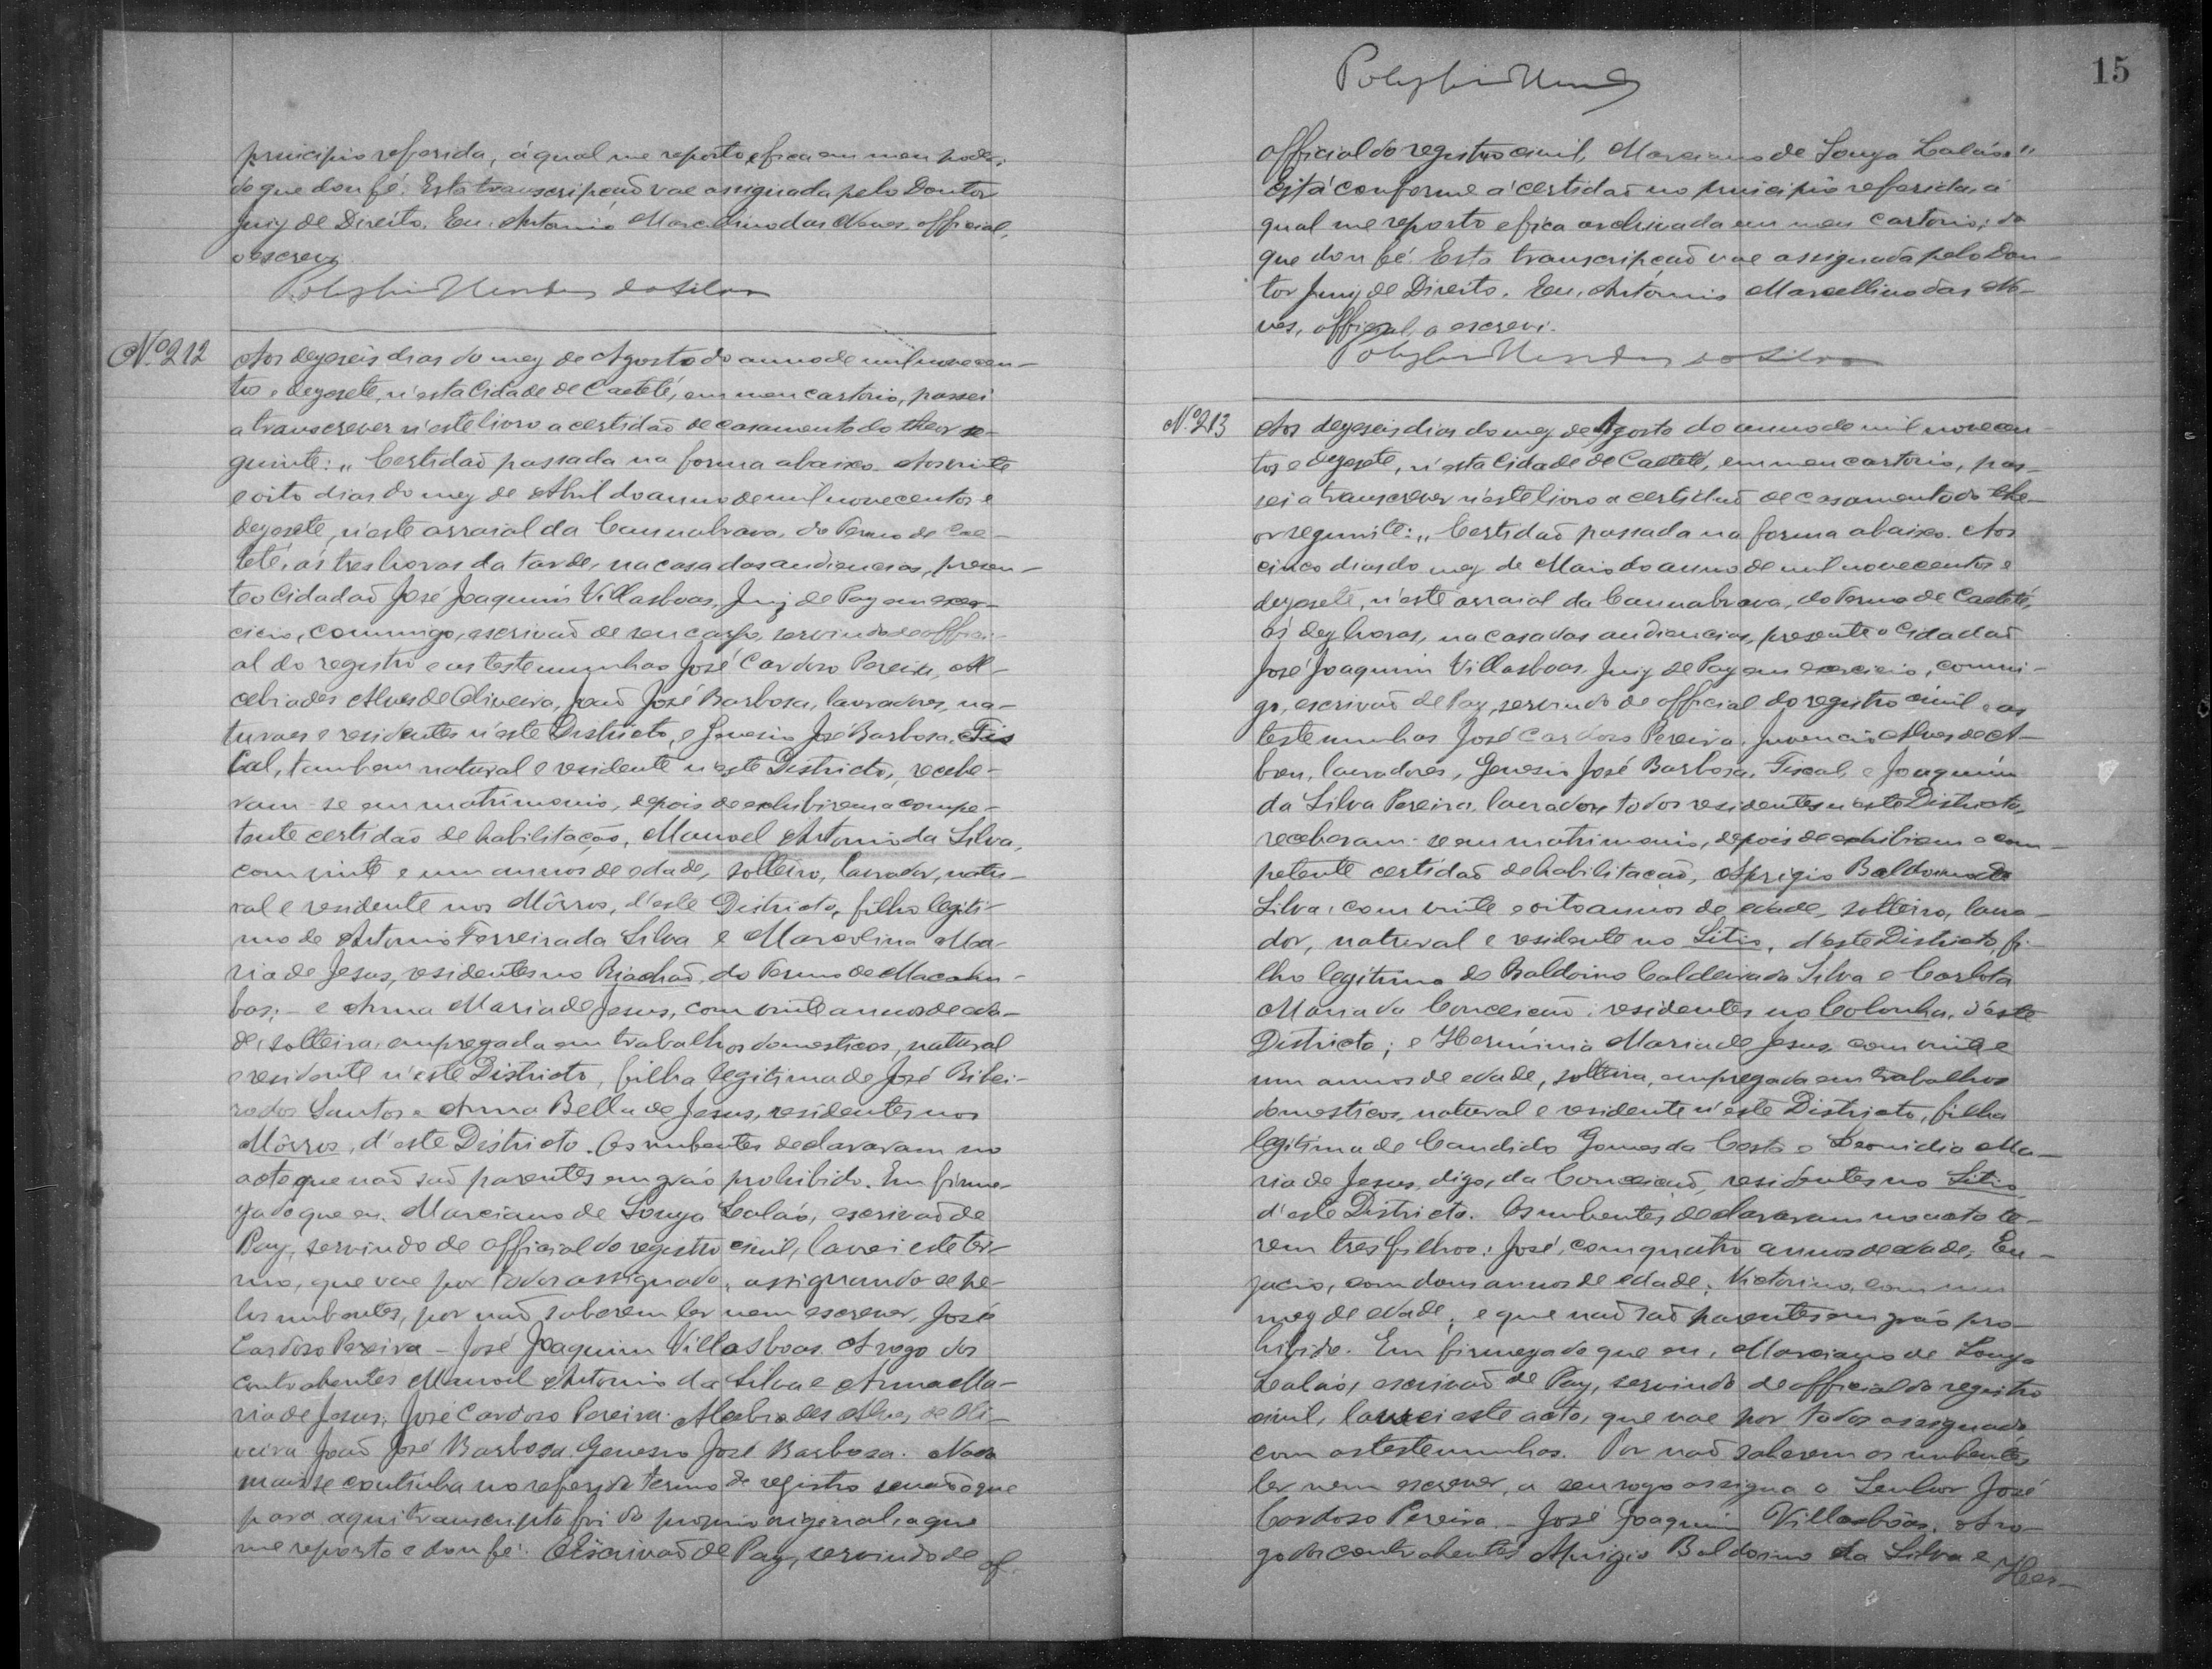 principio referida, á qual me reporto e fica em meu poder,
do que dou fé. Esta transcripção vae assignada pelo Doutor
Juiz de Direito. Eu, Antonio Marcellino das Neves, official,
o escrevi.
Polyphio Mendes da Silva
Nº 212
Aos dezeseis dias do mez de Agosto do anno de mil novecen-
tos e dezesete, n'esta Cidade de Caeteté, em meu cartorio, passei
a transcrever n'este livro a certidão de casamento do theor se-
guinte: „ Certidaõ passada na forma abaixo. Aos vinte
e oito dias do mez de Abril do anno de mil novecentos e
dezesete, n'este arraial da Cannabrava, do Termo de Cae-
teté, ás tres horas da tarde, na casa das audiencias, presen-
te o Cidadaõ José Joaquim Villasboas, Juiz de Paz em exer-
cicio, commigo, escrivaõ de seu cargo, servindo de offici-
al do registro e as testemunhas José Cardoso Pereira, Al-
cebiades Alves de Oliveira, Joaõ José Barbosa, lavradores, na-
turaes e residentes n'este Districto, e Genesio José Barbosa, Fis
cal, tambem natural e residente n'este Districto, recebe-
ram-se em matrimonio, depois de exhibirem a compe-
tente certidaõ de habilitação, Manoel Antonio da Silva,
com vinte e um annos de edade, solteiro, lavrador, natu-
ral e residente nos Môrros, d'este Districto, filho legiti-
mo de Antonio Ferreira da Silva e Marcolina Ma-
ria de Jesus, residentes no Riachaõ, do Termo de Macahu-
bas; - e Anna Maria de Jesus, com vinte annos de eda-
de, solteira, empregada em trabalhos domesticos, natural
e residente n'este Districto, filha legitima de José Ribei-
ro dos Santos e Anna Bella de Jesus, residentes nos
Môrros, d'este Districto. Os nubentes declararam no
acto que naõ saõ parentes em gráo prohibido. Em firme-
za do que eu, Marciano de Souza Lalaó, escrivaõ de
Paz, servindo de official do registro civil, lavrei este ter-
mo, que vae por todos assignado, assignando-se pe-
los nubentes, por naõ saberem ler nem escrever, José
Cardoso Pereira - José Joaquim Villasboas. A rogo dos
contrahentes Manoel Antonio da Silva e Anna Ma-
ria de Jesus, José Cardoso Pereira. Alcebiades Alves de Oli-
veira. Joaõ José Barbosa. Genesio José Barbosa. Nada
mais se continha no referido termo de registro senaõ o que
para aqui transcripto foi do proprio original, a que
me reporto e dou fé. O Escrivaõ de Paz, servindo de of-
15
Polyphio Mendes
official do registro civil, Marciano de Souza Lalaó. „
Está conforme a certidaõ no principio referida, á
qual me reporto e fica archivada em meu cartorio; do
que dou fé. Esta transcripçaõ vae assignada pelo Dou-
tor Juiz de Direito. Eu, Antonio Marcellino das Ne-
ves, official, o escrevi.
Polyphio Mendes da Silva
Nº 213
Aos dezeseis dias do mez de Agosto do anno de mil novecen-
tos e dezesete, n'esta Cidade de Caeteté, em meu cartorio, pas-
sei a transcrever n'este livro a certidaõ de casamento do the-
or seguinte: „ Certidaõ passada na forma abaixo. Aos
cinco dias do mez de Maio do anno de mil novecentos e
dezesete, n'este arraial da Cannabrava, do Termo de Caeteté,
ás dez horas, na casa das audiencias, presente o Cidadaõ
José Joaquim Villasboas, Juiz de Paz em exercicio, commi-
go, escrivaõ de Paz, servindo de official do registro civil e as
testemunhas José Cardoso Pereira, Juvencio Alves de A-
breu, lavradores, Genesio José Barbosa, Fiscal, e Joaquim
da Silva Pereira, lavrador, todos residentes n'este Districto,
receberam-se em matrimonio, depois de exhibirem a com-
petente certidaõ de habilitaçaõ, Aprigio Baldoino da
Silva, com vinte e oito annos de edade, solteiro, lavra-
dor, natural e residente no Sitio, d'este Districto, fi-
lho legitimo de Baldoino Caldeira da Silva e Carlota
Maria da Conceiçaõ, residentes no Colonha, d'este
Districto; e Herminia Maria de Jesus, com vinte e
um annos de edade, solteira, empregada em trabalhos
domesticos, natural e residente n'este Districto, filha
legitima de Candido Gomes da Costa e Leonidia Ma-
ria de Jesus, digo, da Conceiçaõ, residentes no Sitio,
d'este Districto. Os nubentes declararam no acto te-
rem tres filhos: José, com quatro annos de edade; Eu-
zucio, com dous annos de edade; Victorino, com um
mez de edade; e que naõ saõ parentes em gráo pro-
hibido. Em firmeza do que eu, Marciano de Souza
Lalaó, escrivaõ de Paz, servindo de official do registro
civil, lavrei este acto, que vae por todos assignado
com as testemunhas. Por naõ saberem os nubentes
ler nem escrever, a seu rogo assigna o Senhor José
Cardoso Pereira. - José Joaquim Villasbôas. A ro-
go dos contrahentes Aprigio Baldoino da Silva e Her-